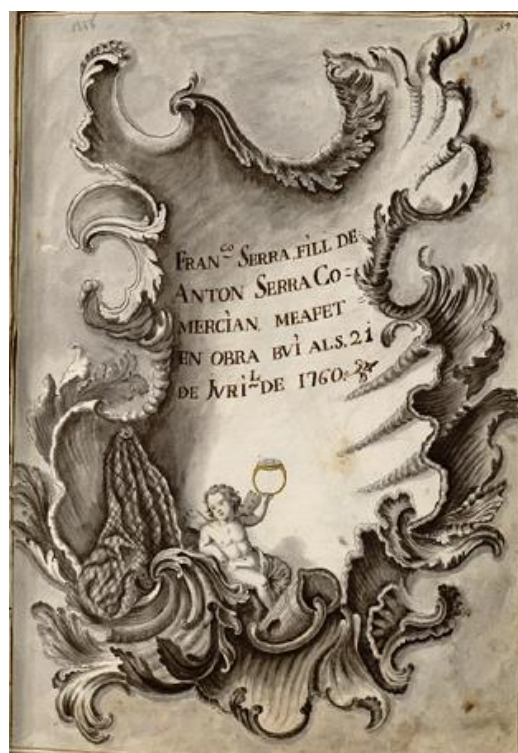 FRANCO SERRA FILL DE
ANTON SERRA CO=
MERCIAN MEAFET
EN OBRA BVI ALS. 21
DE JVRIL DE 1760.